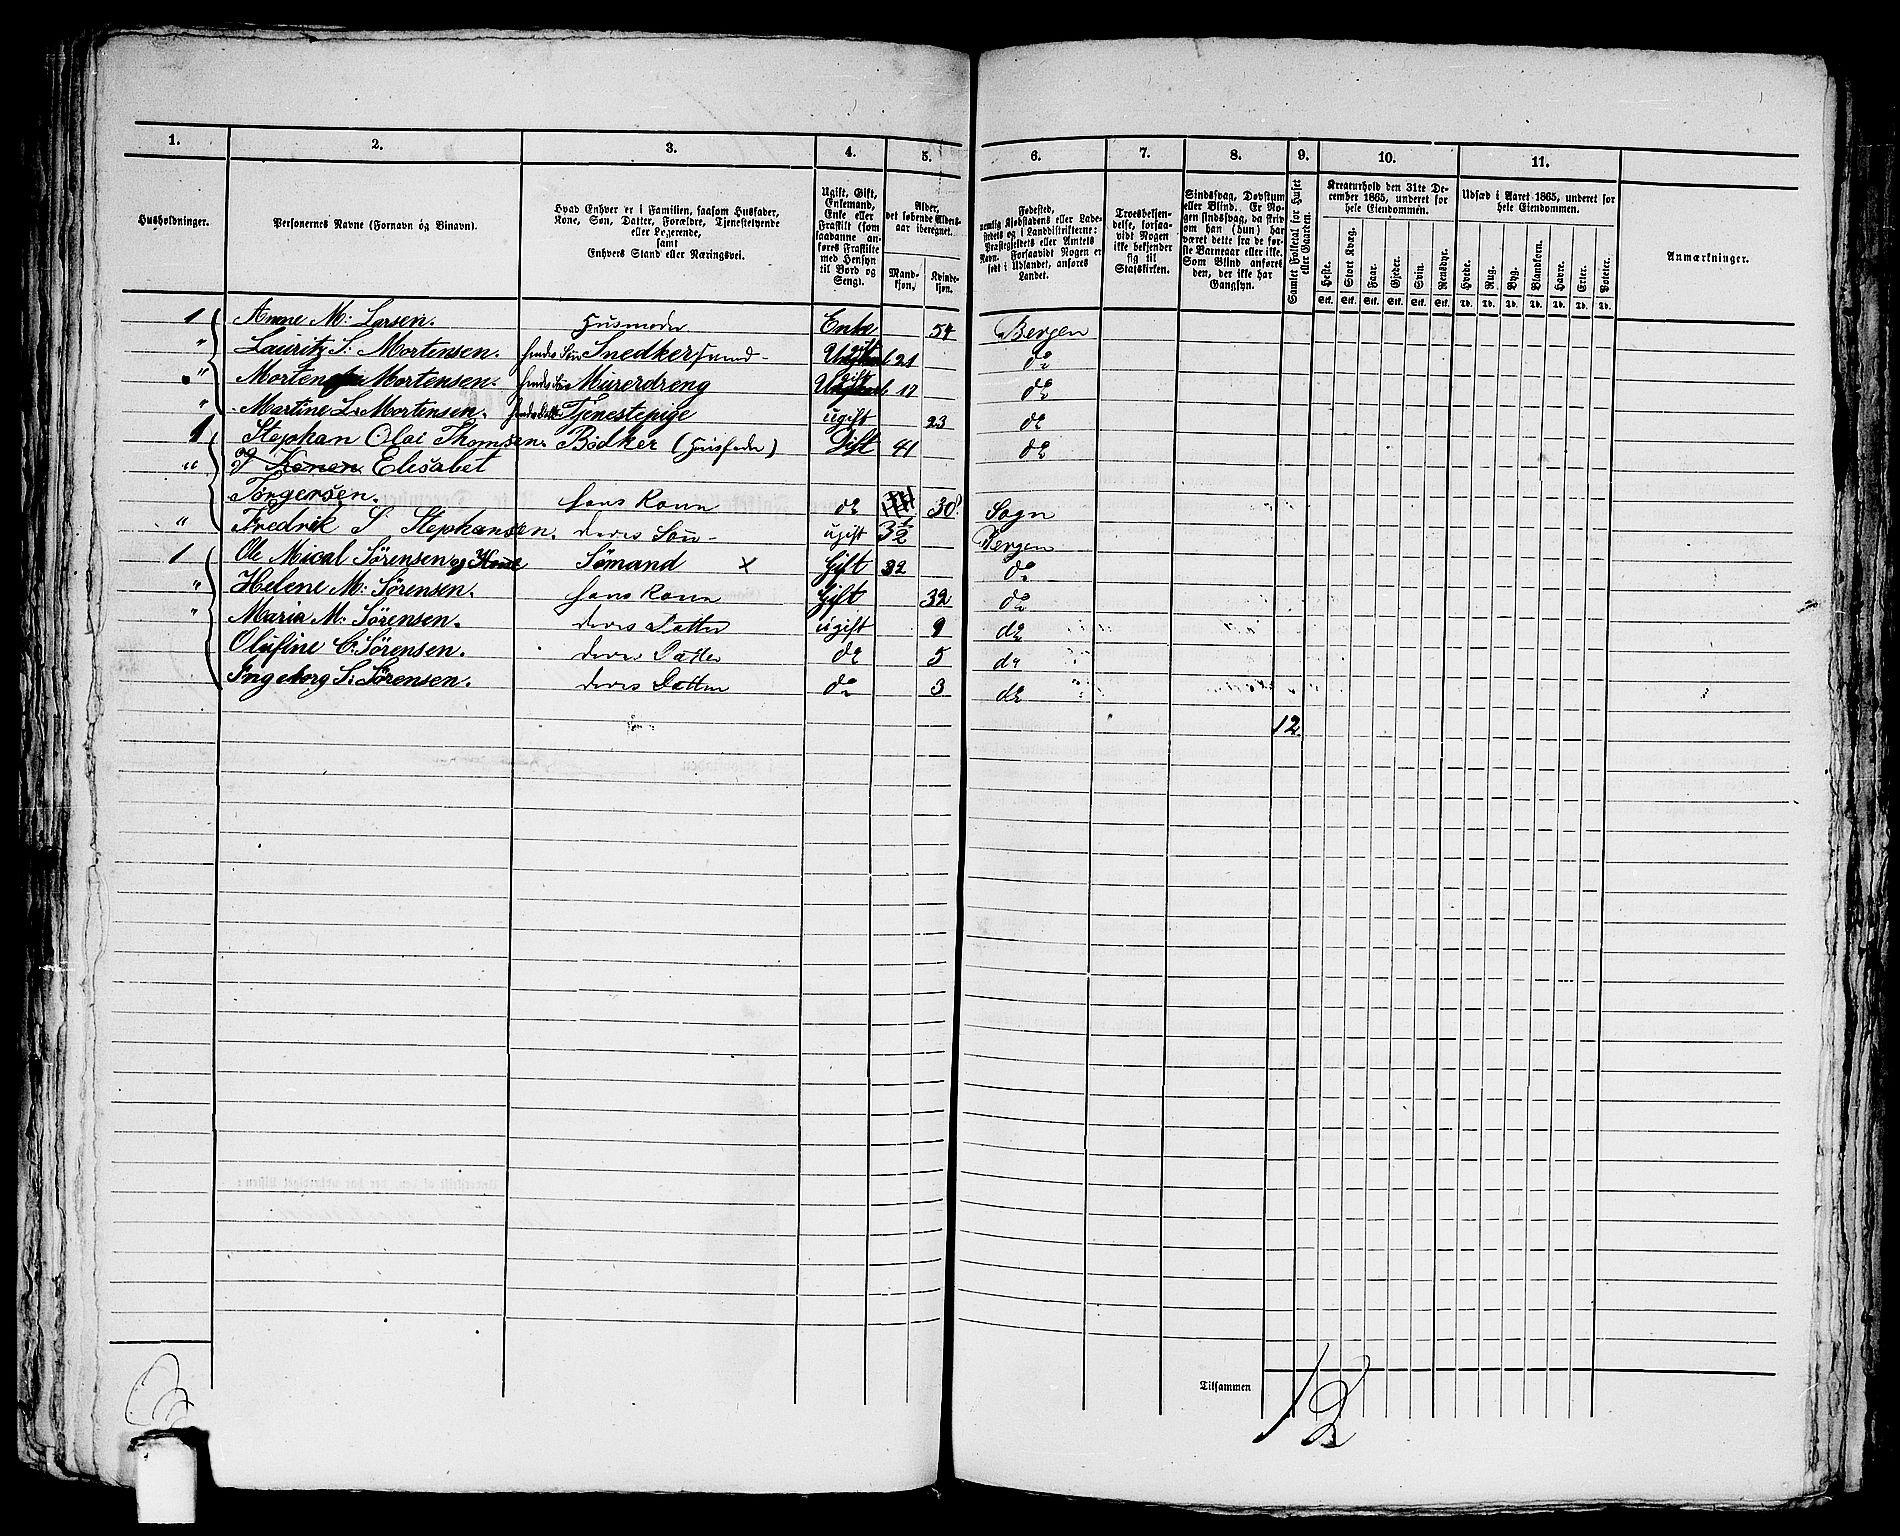 1. 2. 3. 4. 5. 6. 7. 8. 9. 10. 11.
Husholdninger.
Personernes Navne (Fornavn og Binavn).
Hvad Enhver er i Familien, saasom Husfader,
Kone, Søn, Datter, Forældre, Tjenestetyende
eller Logerende,
samt
Enhvers Stand eller Næringsvei.
Ugift, Gift,
Enkemand,
Enke eller
Fraskilt (som
saadanne an-
føres Fraskilte
med Hensyn
til Bord og
Seng).
Alder,
det løbende Alders-
aar iberegnet.
Mand-
kjøn.
Kvinde-
kjøn.
Fødested,
nemlig Kjøbstadens eller Lade-
stedets og i Landdistrikterne:
Præstegjeldets eller Amtets
Navn. Forsaavidt Nogen er
født i Udlandet, anføres
Landet.
Troesbekjen-
delse, forsaa-
vidt Nogen
ikke bekjender
sig til
Statskirken.
Sindssvag, Døvstum
eller Blind. Er No-
gen sindssvag, da skriv
om han (hun) har
været dette fra de før-
ste Barneaar eller ikke.
Som Blind anføres
den, der ikke har
Gangsyn.
Samlet Folketal for Huset
eller Gaarden.
Kreaturhold den 31te De-
cember 1865, underet for
hele Eiendommen.
Heste. Stort Kvæg. Faar. Gjeder. Svin. Rensdyr.
Stk. Stk. Stk. Stk. Stk. Stk.
Udsæd i Aaret 1865, underet for
hele Eiendommen.
Hvede. Rug. Byg. Blandkorn. Havre. Erter. Poteter.
Td. Td. Td. Td. Td. Td. Td.
Anmærkninger.
1 Anne M: Larsen. Husmoder Enke 54 Bergen
" Lauritz S. Mortensen. hendes Søn Snedkersvend Ugift 21 do
" Morten Mortensen. hendes Søn Murerdreng Ugift 17 do
" Martine L. Mortensen. hendes Datter Tjenestepige ugift 23 do
1 Stephan Olai Thomsen. Bödker (Huusfader) Gift 41 do
" og Konen Elisabet
Törgersen. hans Kone do 30 Sogn
" Fredrik S. Stephansen. deres Sön ugift 3½ Bergen
1 Ole Mical Sörensen og Kone Sömand x Gift 32 do
" Helene M: Sörensen. hans Kone Gift 32 do
" Maria M: Sörensen. deres Datter ugift 9 do
Olufine C: Sörensen. deres Datter do 5 do
Ingeborg S. Sörensen. deres Datter do 3 do
12
Tilsammen 12